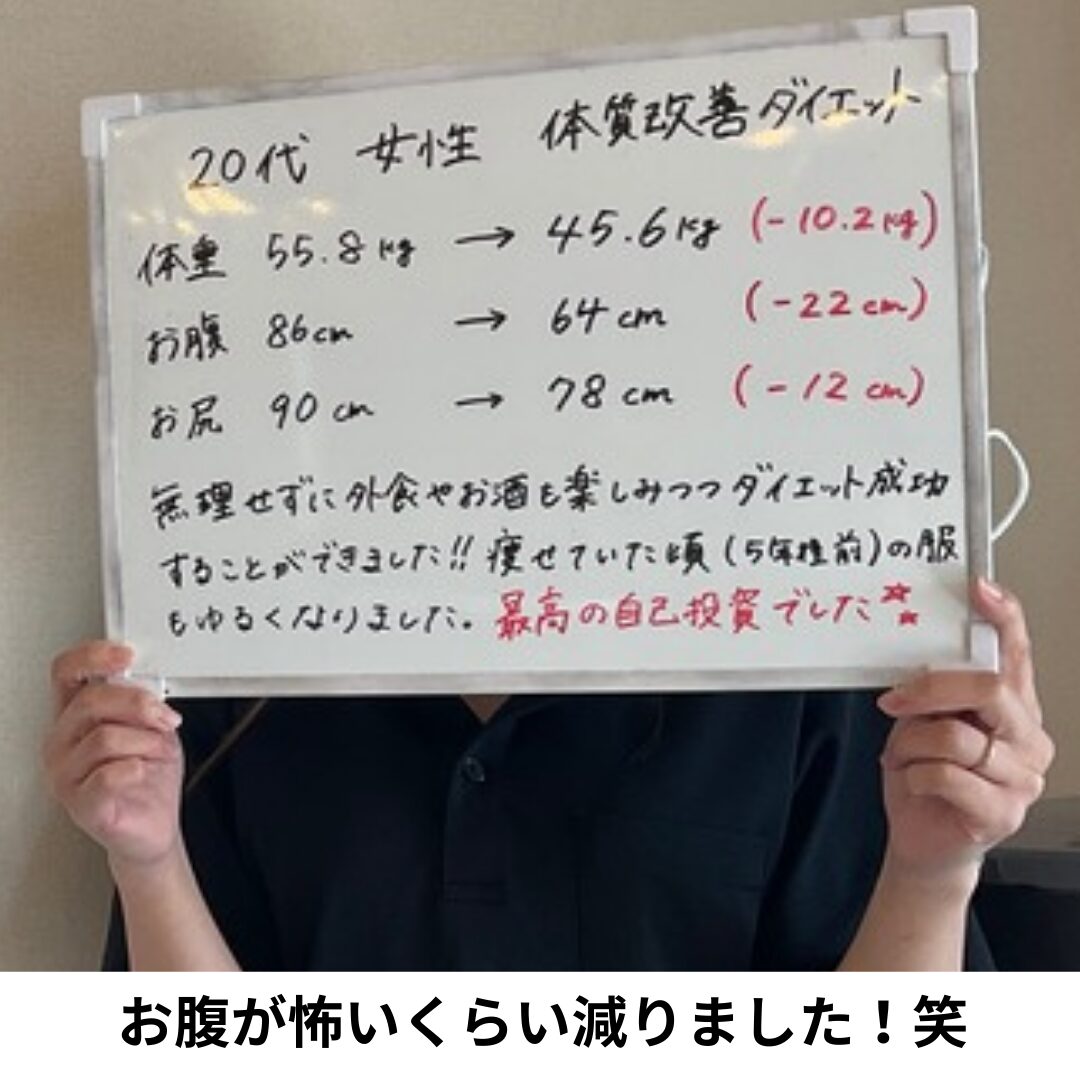 20代 女性 体質改善ダイエット
体重 55.8kg → 45.6kg (-10.2kg)
お腹 86cm → 64cm (-22cm)
お尻 90cm → 78cm (-12cm)
無理せずに外食やお酒も楽しみつつダイエット成功
することができました!! 痩せていた頃(5年程前)の服
もゆるくなりました。最高の自己投資でした
お腹が怖いくらい減りました！笑